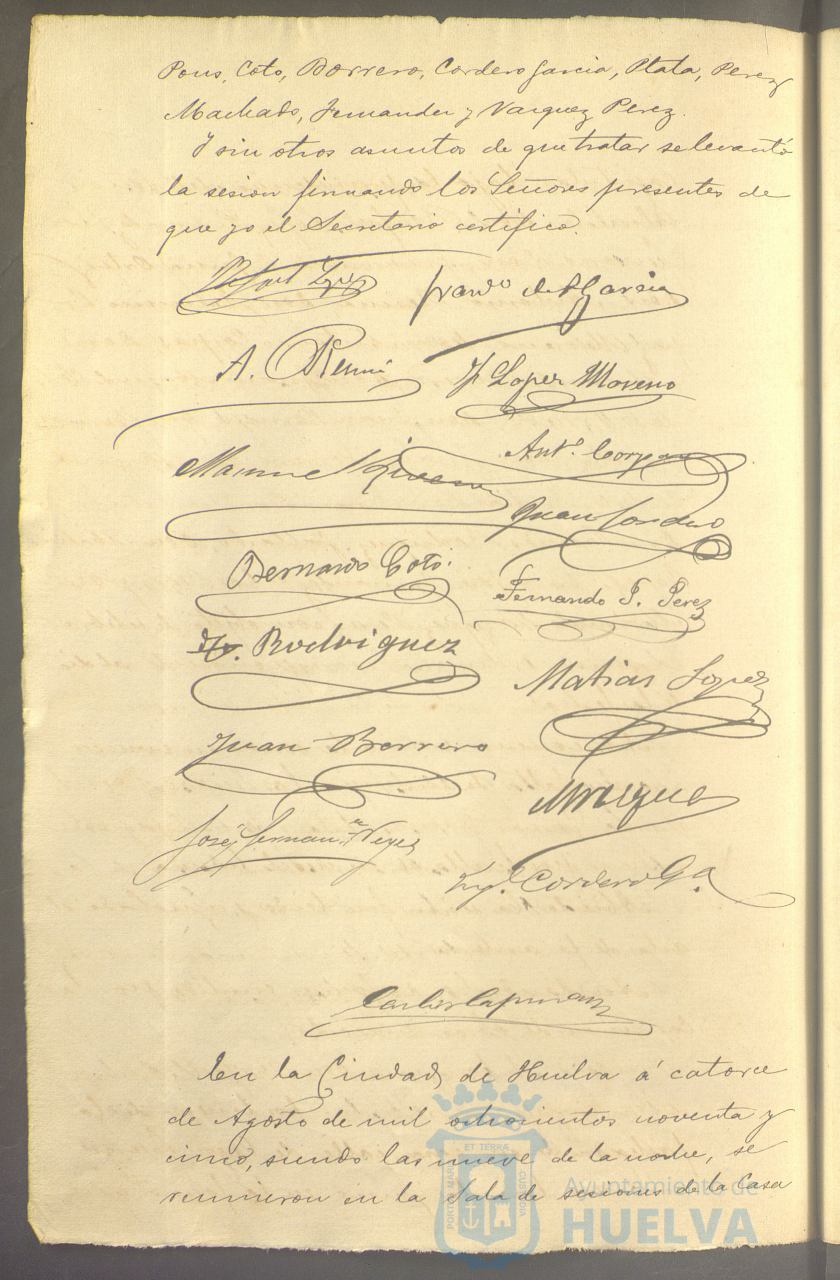 Pons, Coto, Borrero, Cordero Garcia, Plata, Perez
Machado, Fernandez y Vazquez Perez.
Y sin otros asuntos de que tratar se levantó
la sesion firmando los Señores presentes de
que yo el Secretario certifico.
de Garcia
A.
J Lopez Moreno
Manuel
Antº.
Juan Cordero
Bernardo Coto.
Fernando P. Perez
Rodriguez
Matias Lopez
Juan Borrero
José Fernanez
Cordero Gª.
En la Ciudad de Huelva á catorce
de Agosto de mil ochocientos noventa y
cinco, siendo las nueve de la noche, se
reunieron en la Sala de sesiones de la Casa
PORTUS MARIS
ET TERRÆ
CUSTODIA
Ayuntamiento de
HUELVA